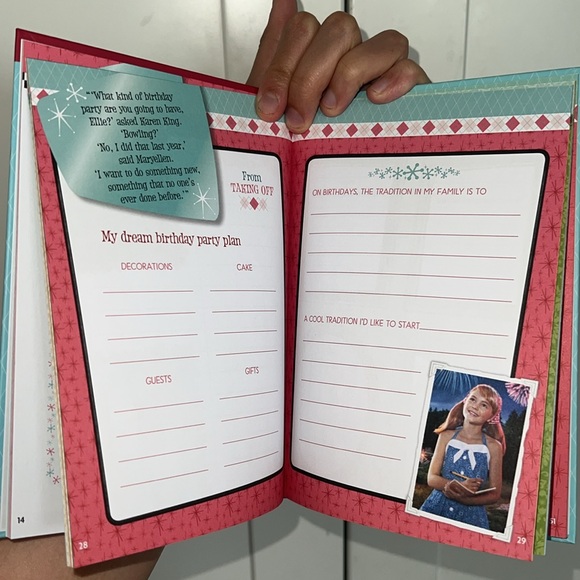 "'What kind of birthday
party are you going to have,
Ellie?' asked Karen King.
'Bowling?'
'No, I did that last year,'
said Maryellen.
'I want to do something new,
something that no one's
ever done before.'"
From
TAKING OFF
My dream birthday party plan
DECORATIONS
CAKE
GUESTS
GIFTS
14
28
ON BIRTHDAYS, THE TRADITION IN MY FAMILY IS TO
A COOL TRADITION I'D LIKE TO START
29
51